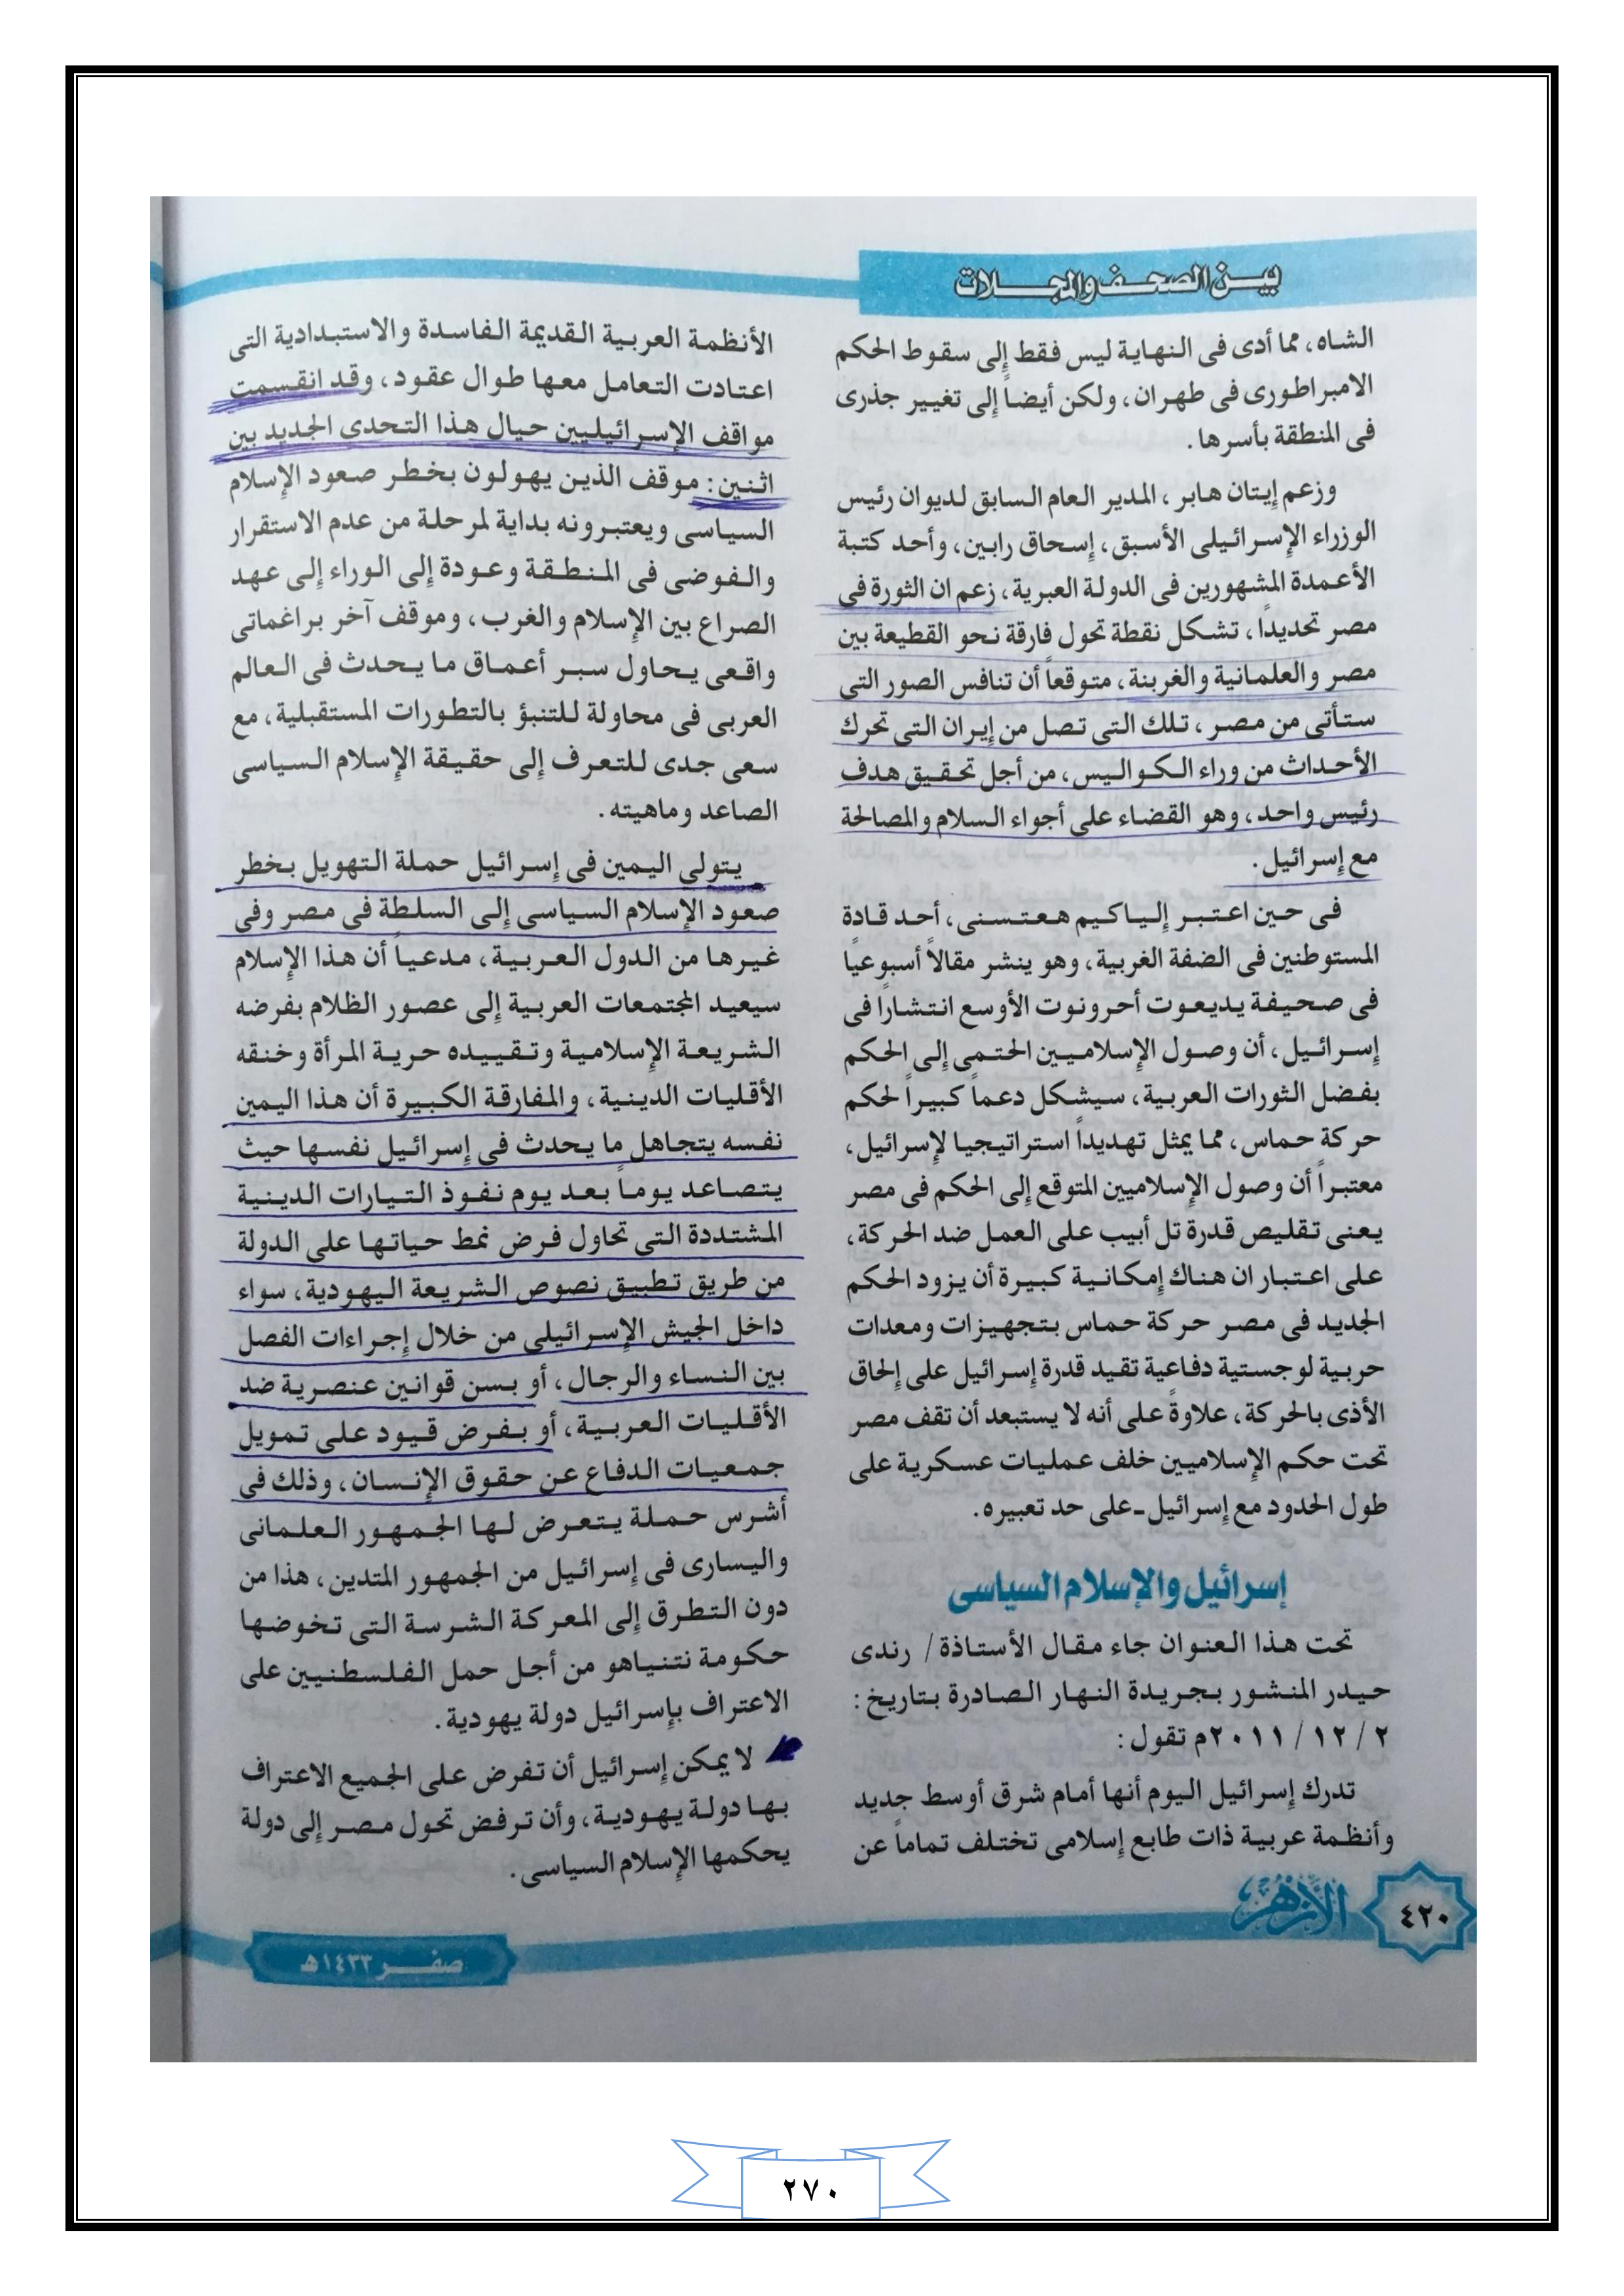 بين الصحف والمجلات
الشاه، مما أدى فى النهاية ليس فقط إلى سقوط الحكم
الامبراطورى فى طهران، ولكن أيضاً إلى تغيير جذرى
فى المنطقة بأسرها.
وزعم إيتان هابر، المدير العام السابق لديوان رئيس
الوزراء الإسرائيلى الأسبق، إسحاق رابين، وأحد كتبة
الأعمدة المشهورين فى الدولة العبرية، زعم ان الثورة فى
مصر تحديداً، تشكل نقطة تحول فارقة نحو القطيعة بين
مصر والعلمانية والغربنة، متوقعاً أن تنافس الصور التى
ستأتى من مصر، تلك التى تصل من إيران التى تحرك
الأحداث من وراء الكواليس، من أجل تحقيق هدف
رئيس واحد، وهو القضاء على أجواء السلام والمصالحة
مع إسرائيل.
فى حين اعتبر إلياكيم هعتسنى، أحد قادة
المستوطنين فى الضفة الغربية، وهو ينشر مقالاً أسبوعياً
فى صحيفة يديعوت أحرونوت الأوسع انتشارًا فى
إسرائيل، أن وصول الإسلاميين الحتمى إلى الحكم
بفضل الثورات العربية، سيشكل دعماً كبيراً لحكم
حركة حماس، مما يمثل تهديداً استراتيجيا لإسرائيل،
معتبراً أن وصول الإسلاميين المتوقع إلى الحكم فى مصر
يعنى تقليص قدرة تل أبيب على العمل ضد الحركة،
على اعتبار ان هناك إمكانية كبيرة أن يزود الحكم
الجديد فى مصر حركة حماس بتجهيزات ومعدات
حربية لوجستية دفاعية تقيد قدرة إسرائيل على إلحاق
الأذى بالحركة، علاوةً على أنه لا يستبعد أن تقف مصر
تحت حكم الإسلاميين خلف عمليات عسكرية على
طول الحدود مع إسرائيل ـ على حد تعبيره.
إسرائيل والإسلام السياسى
تحت هذا العنوان جاء مقال الأستاذة/ رندى
حيدر المنشور بجريدة النهار الصادرة بتاريخ:
٢ / ١٢ / ٢٠١١م تقول:
تدرك إسرائيل اليوم أنها أمام شرق أوسط جديد
وأنظمة عربية ذات طابع إسلامى تختلف تماماً عن
الأنظمة العربية القديمة الفاسدة والاستبدادية التى
اعتادت التعامل معها طوال عقود، وقد انقسمت
مواقف الإسرائيليين حيال هذا التحدى الجديد بين
اثنين: موقف الذين يهولون بخطر صعود الإسلام
السياسى ويعتبرونه بداية لمرحلة من عدم الاستقرار
والفوضى فى المنطقة وعودة إلى الوراء إلى عهد
الصراع بين الإسلام والغرب، وموقف آخر براغماتى
واقعى يحاول سبر أعماق ما يحدث فى العالم
العربى فى محاولة للتنبؤ بالتطورات المستقبلية، مع
سعى جدى للتعرف إلى حقيقة الإسلام السياسى
الصاعد وماهيته.
يتولى اليمين فى إسرائيل حملة التهويل بخطر
صعود الإسلام السياسى إلى السلطة فى مصر وفى
غيرها من الدول العربية، مدعياً أن هذا الإسلام
سيعيد المجتمعات العربية إلى عصور الظلام بفرضه
الشريعة الإسلامية وتقييده حرية المرأة وخنقه
الأقليات الدينية، والمفارقة الكبيرة أن هذا اليمين
نفسه يتجاهل ما يحدث فى إسرائيل نفسها حيث
يتصاعد يوماً بعد يوم نفوذ التيارات الدينية
المشتددة التى تحاول فرض نمط حياتها على الدولة
من طريق تطبيق نصوص الشريعة اليهودية، سواء
داخل الجيش الإسرائيلى من خلال إجراءات الفصل
بين النساء والرجال، أو بسن قوانين عنصرية ضد
الأقليات العربية، أو بفرض قيود على تمويل
جمعيات الدفاع عن حقوق الإنسان، وذلك فى
أشرس حملة يتعرض لها الجمهور العلمانى
واليسارى فى إسرائيل من الجمهور المتدين، هذا من
دون التطرق إلى المعركة الشرسة التى تخوضها
حكومة نتنياهو من أجل حمل الفلسطنيين على
الاعتراف بإسرائيل دولة يهودية.
لا يمكن إسرائيل أن تفرض على الجميع الاعتراف
بها دولة يهودية، وأن ترفض تحول مصر إلى دولة
يحكمها الإسلام السياسى.
٤٢٠
الأزهر
صفر ١٤٣٣هـ
٢٧٠